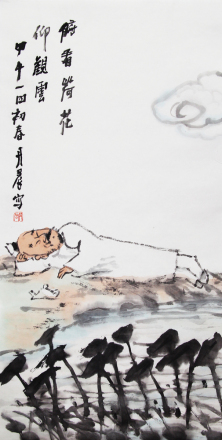 俯看荷花
仰觀雲
甲午一四初春